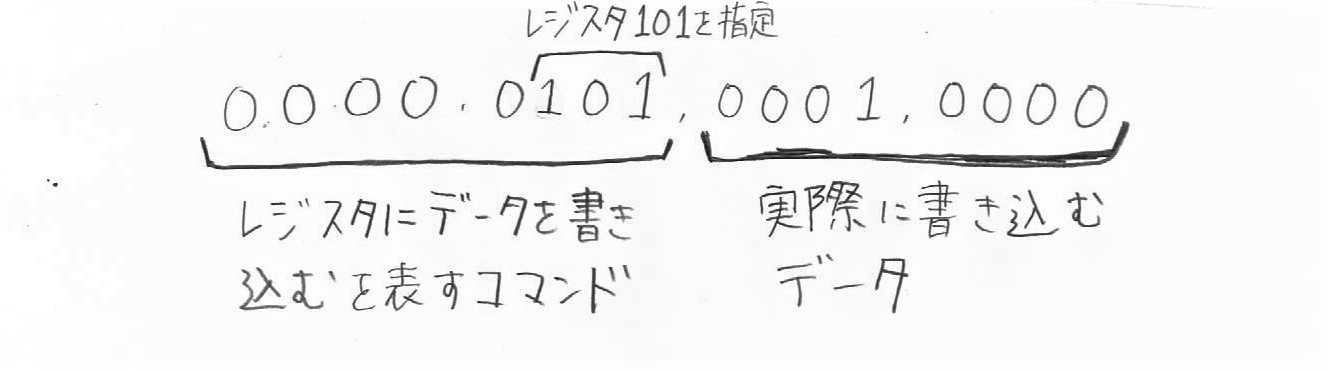 レジスタ101を指定
0.000.0101,0001.0000
レジスタにデータを書き
込むを表すコマンド
実際に書き込む
データ